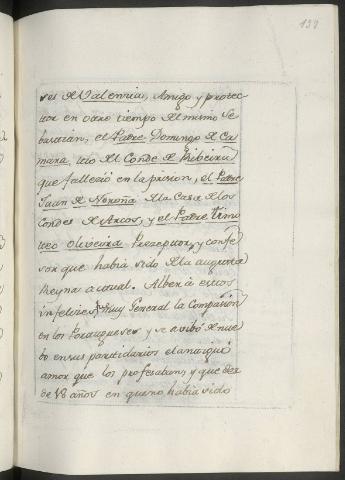 139
ses de Valennia, Amigo y protec
tor en otro tiempo del mismo Se
bastian, el Padre Domingo de Ca
mara, tio del Conde de Ribeira
que fallezió en la prision, el Padre
Juan de Noroña de la Casa de los
Condes de Arcos, y el Padre Timo
teo Oliveira Prezeptor, y confe
sor que habia sido de la augusta
Reyna actual. Al ber à estos
infelizes, fue muy General la Compasión
en los Portugueses y se avibó de nue
bo en sus partidarios el antiguo
amor que los profesaban, y que des
de 18 años en que no habia sido